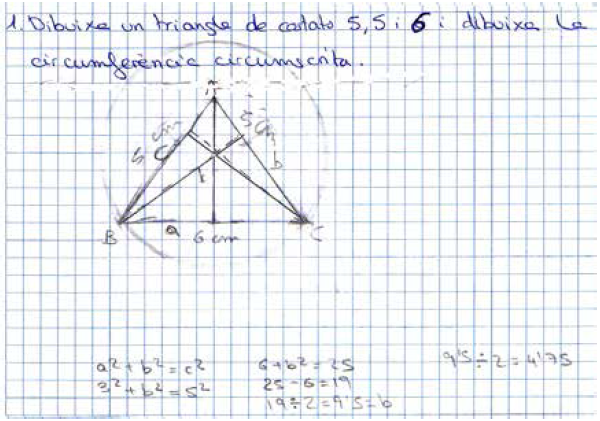 1. Dibuixa un triangle de costats 5, 5 i 6 i dibuixa la
circumferència circumscrita.
A
5 cm
5 cm
b
B
a
6 cm
C
a² + b² = c²
3² + b² = 5²
6 + b² = 25
25 - 6 = 19
19 ÷ 2 = 9'5 = b
9'5 ÷ 2 = 4'75